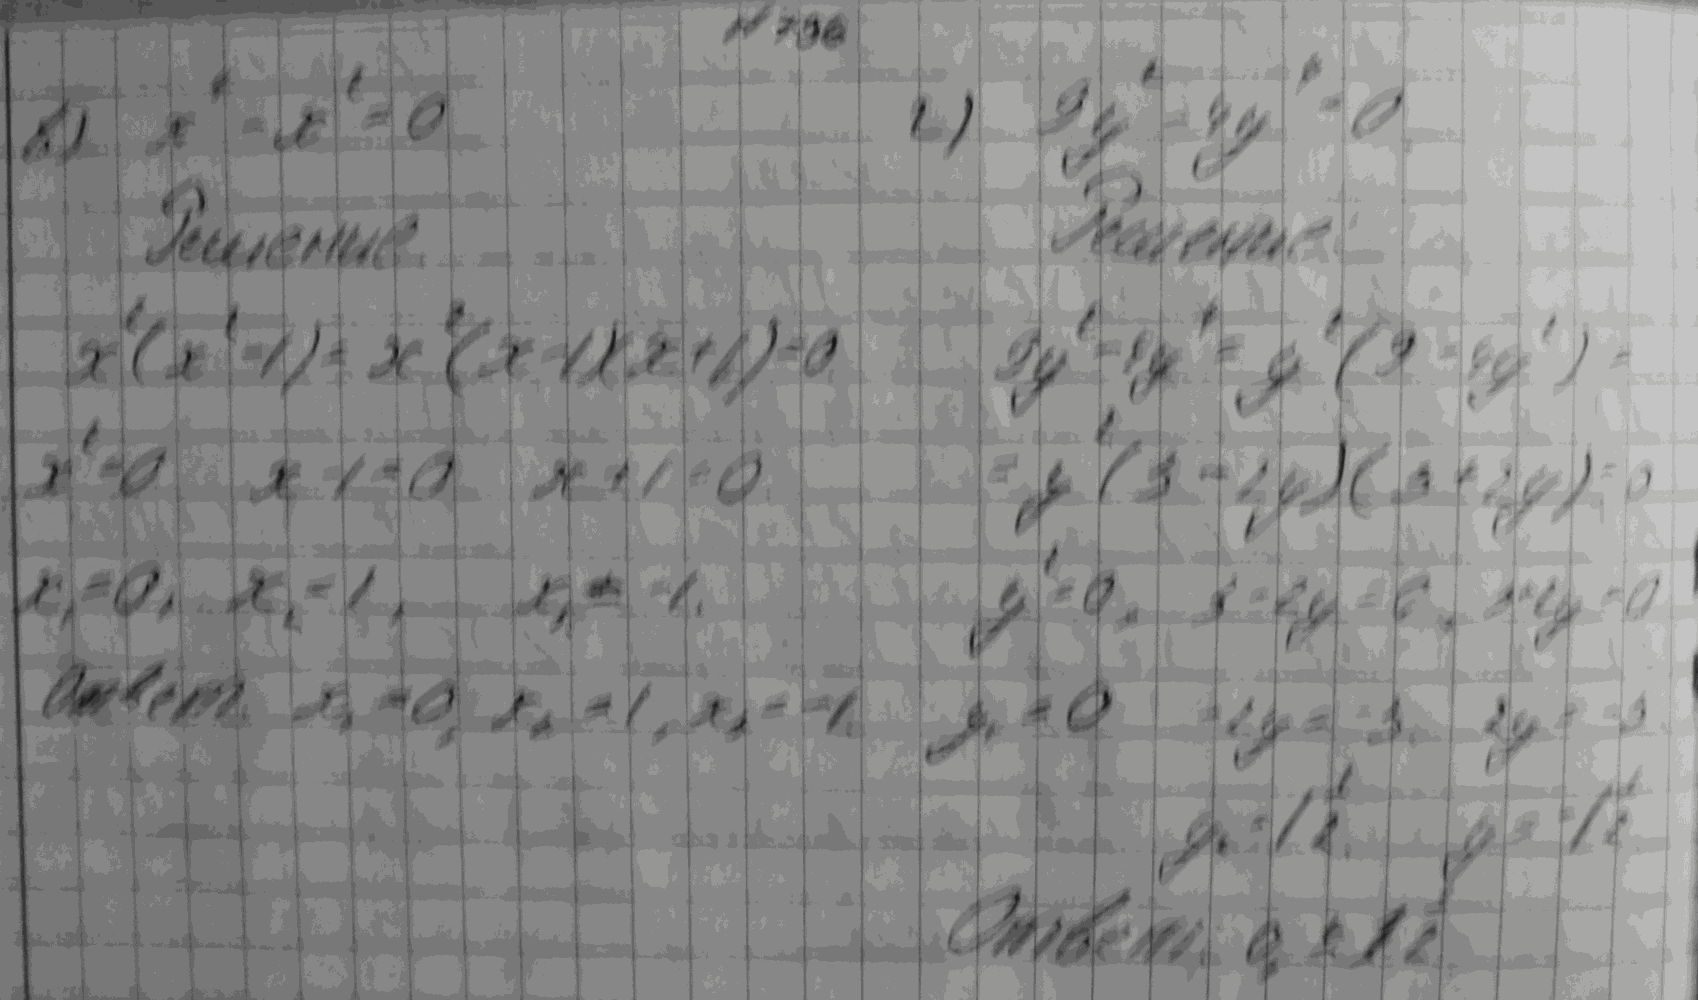 № 796
б) x⁴ - x² = 0
Решение
x²(x² - 1) = x²(x - 1)(x + 1) = 0
x² = 0 x - 1 = 0 x + 1 = 0
x₁ = 0, x₂ = 1, x₃ = -1.
Ответ: x₁ = 0, x₂ = 1, x₃ = -1.
г) 9y² - 4y⁴ = 0
Решение:
9y² - 4y⁴ = y²(9 - 4y²) =
= y²(3 - 2y)(3 + 2y) = 0
y² = 0, 3 - 2y = 0, 3 + 2y = 0
y₁ = 0 -2y = -3. 2y = -3
y₂ = 1½. y = -1½
Ответ: 0, ± 1½